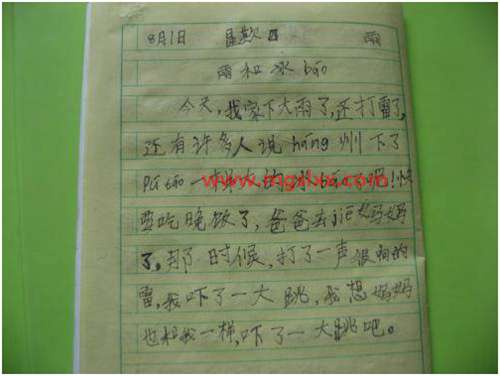 8月1日 星期日 雨
雨和冰báo
今天,我家下大雨了,还打雷了,
还有许多人说háng州下了
一 的冰 呢!快
要吃晚饭了,爸爸去jiē妈妈
了,那时候,打了一声很响的
雷,我吓了一大跳,我想妈妈
也和我一样,吓了一大跳吧。